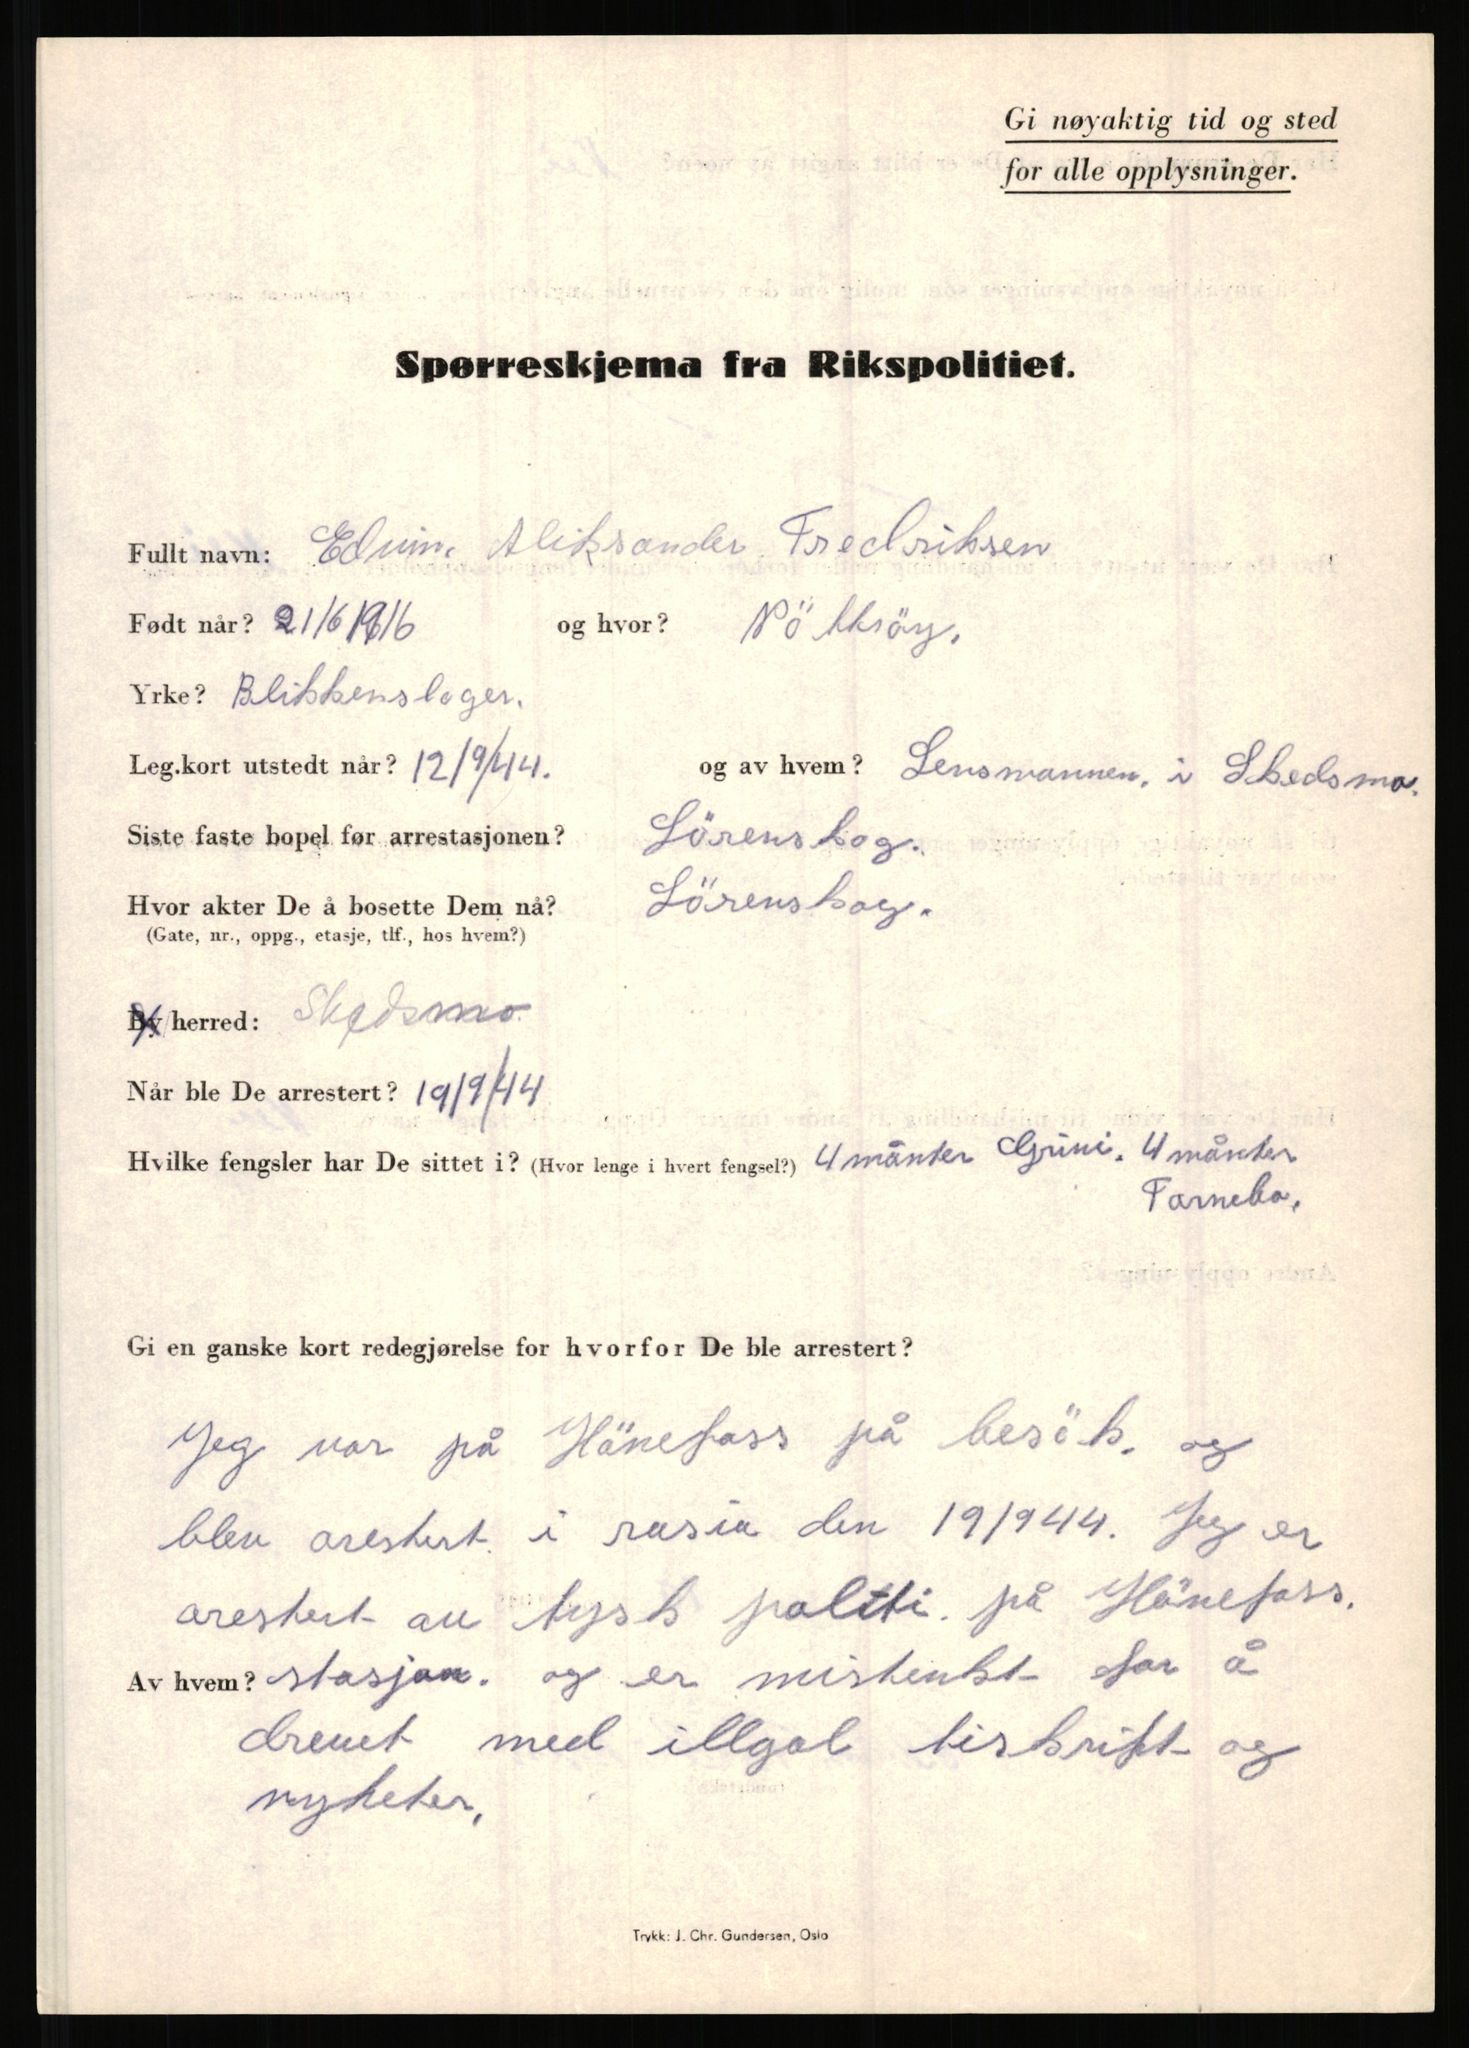 Gi nøyaktig tid og sted
for alle opplysninger.
Spørreskjema fra Rikspolitiet.
Fullt navn: Edwin. Aliksander Fredriksen
Født når? 21/6 1916 og hvor? Nötteröy.
Yrke? Blikkenslager.
Leg.kort utstedt når? 12/9/44. og av hvem? Lensmannen. i Skedsmo.
Siste faste bopel før arrestasjonen? Lörenskog.
Hvor akter De å bosette Dem nå? Lörenskog.
(Gate, nr., oppg., etasje, tlf., hos hvem?)
By/herred: Skedsmo
Når ble De arrestert? 19/9/44
Hvilke fengsler har De sittet i? (Hvor lenge i hvert fengsel?) 4 månter Grini. 4 månter
Fornebo.
Gi en ganske kort redegjørelse for hvorfor De ble arrestert?
Jeg var på Hönefoss på besök. og
blev arestert. i rasia den 19/944. Jeg er
arestert av tysk politi. på Hönefoss.
Av hvem? stasjon. og er mistenkt for å
drevet med illgal tiskrift og
nyheter.
Trykk: J. Chr. Gundersen, Oslo